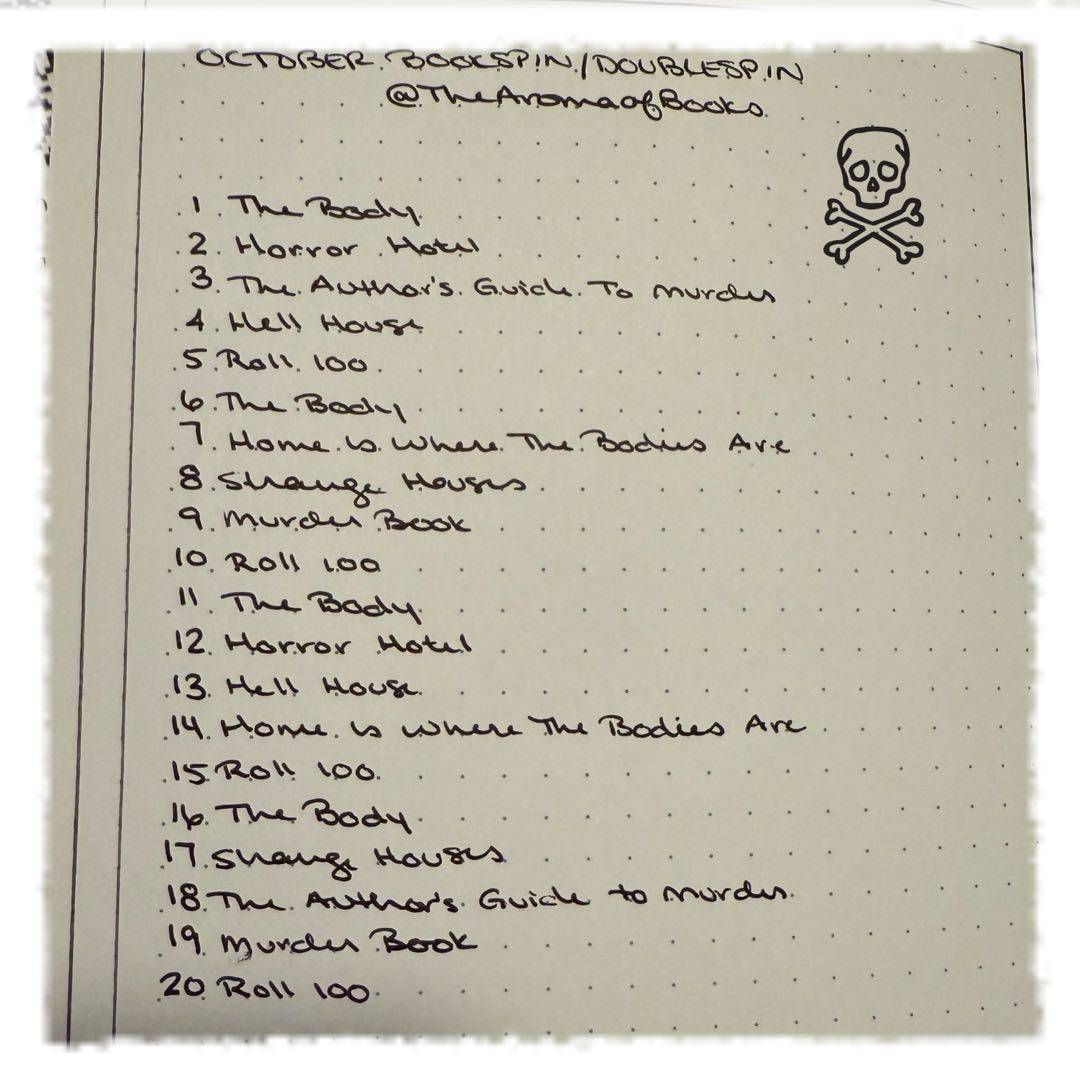 OCTOBER BOOKSPIN/DOUBLESPIN
@TheAromaofBooks
1. The Body
2. Horror Hotel
3. The Author's Guide To Murder
4. Hell House
5. Roll 100
6. The Body
7. Home is Where The Bodies Are
8. Strange Houses
9. Murder Book
10. Roll 100
11. The Body
12. Horror Hotel
13. Hell House
14. Home is Where The Bodies Are
15. Roll 100
16. The Body
17. Strange Houses
18. The Author's Guide to Murder
19. Murder Book
20. Roll 100